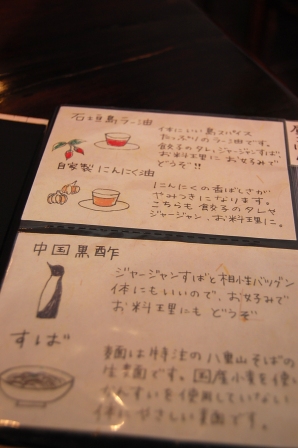 石垣島ラー油
体にいい島スパイス
たっぷりのラー油です。
餃子のタレ、ジャージャンすば、
お料理に お好みで
どうぞ!!
自家製 にんにく油
にんにくの香ばしさが
やみつきになります。
こちらも 餃子のタレや
ジャージャン、お料理に。
中国黒酢
ジャージャンすばと相性バツグン
体にもいいので、お好みで
お料理にも どうぞ
すば
麺は特注の八重山そばの
生麺です。国産小麦を使い
かんすいを使用していない
体にやさしい麺です。